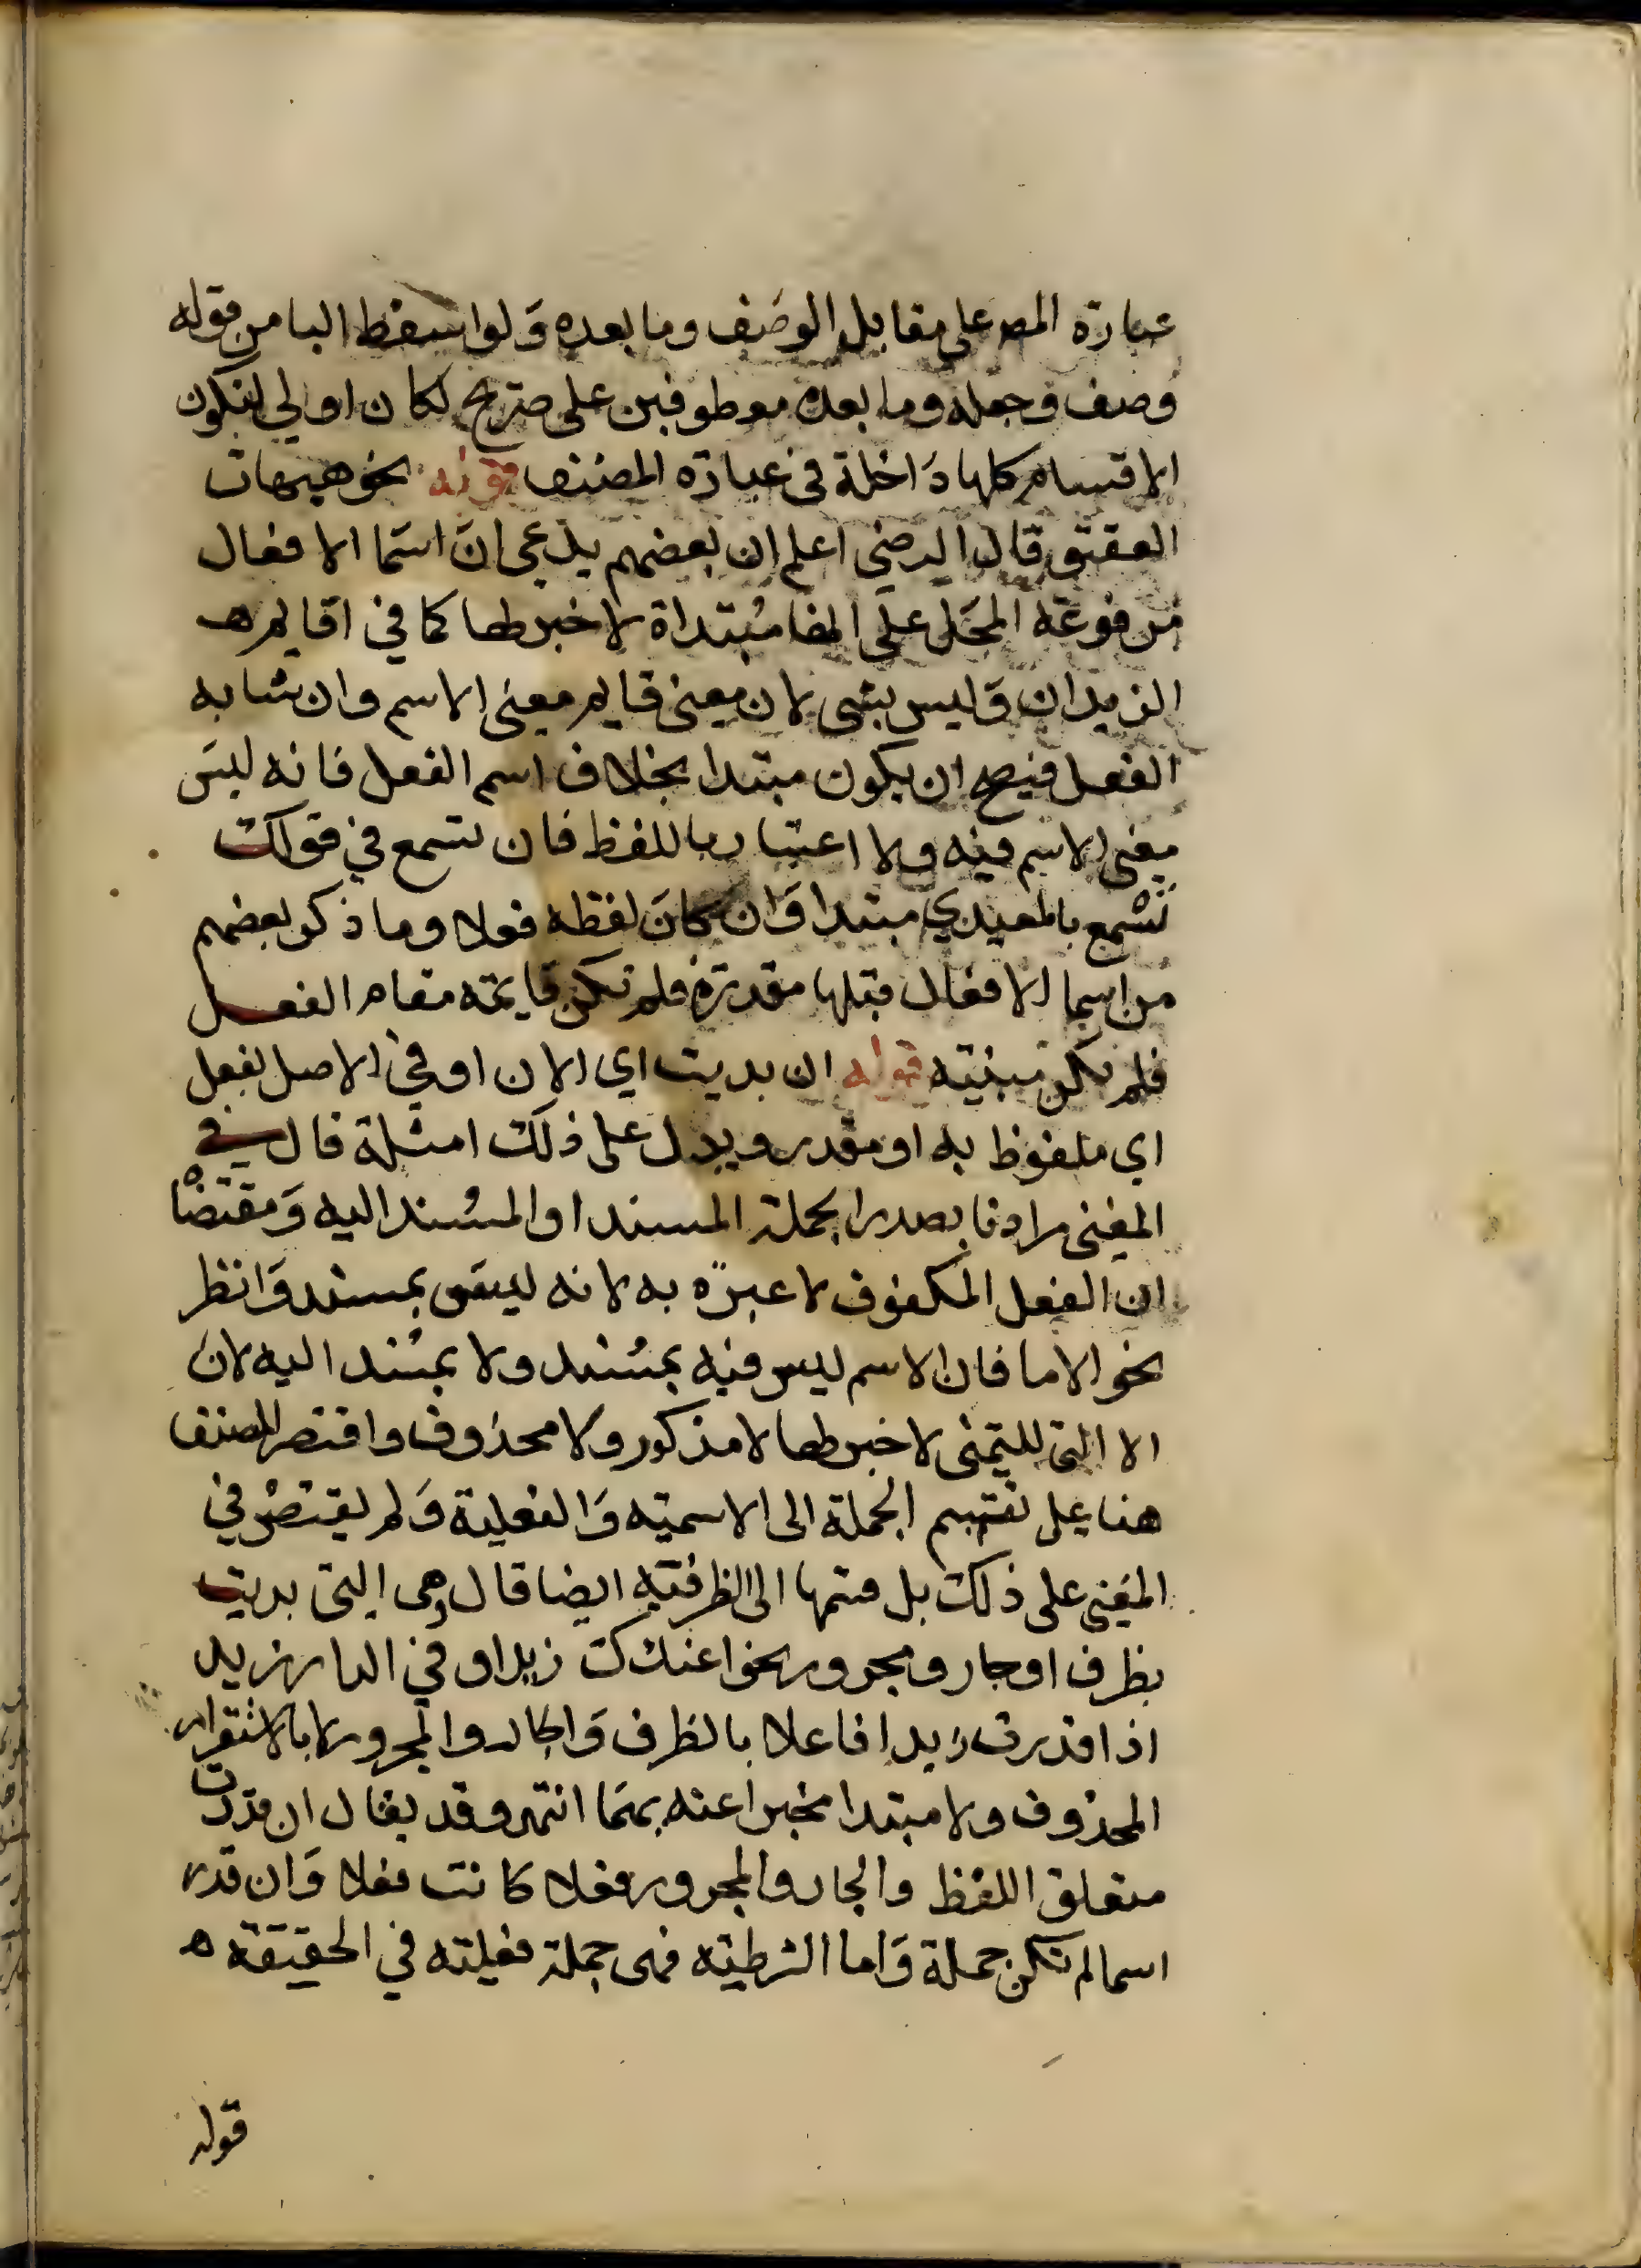 عبارة المص على مقابل الوصف وما بعده ولو اسقط البا من قوله
وصف وجعله وما بعده معطوفين على صريح لكان اولي لتكون
الاقسام كلها داخلة في عبارة المصنف قوله نحو هيهات
العقيق قال الرضي اعلم ان بعضهم يدعي ان اسما الافعال
مرفوعة المحل على انها مبتداة لا خبر لها كما في اقايم
الزيدان وليس بشي لان معنى قايم معنى الاسم وان شابه
الفعل فيصح ان يكون مبتدا بخلاف اسم الفعل فانه ليس
معنى الاسم فيه ولا اعتبار باللفظ فان تسمع في قولك
تسمع بالمعيدي مبتدا وان كان لفظه فعلا وما ذكر بعضهم
من اسما الافعال قبلها مقدرة فلم تكن قايمة مقام الفعل
فلم تكن مبنية قوله ان بديت اي الان او في الاصل بفعل
اي ملفوظ به او مقدر ويدل على ذلك امثلة قال في
المغنى مرادنا بصدر الجملة المسند او المسند اليه ومقتضا
ان الفعل المكفوف لا عبرة به لانه ليس بمسند وانظر
نحو الاما فان الاسم ليس فيه بمسند ولا بمسند اليه لان
الا التي للتمنى لا خبر لها لا مذكور ولا محذوف واقتصر المصنف
هنا على تقسيم الجملة الى الاسمية والفعلية ولم يقتصر في
المغني على ذلك بل قسمها الى الظرفية ايضا قال وهي التي بديت
بظرف او جار ومجرور نحو اعندك زيد او في الدار زيد
اذا قدرت زيدا فاعلا بالظرف والجار والمجرور لا بالاستقرار
المحذوف ولا مبتدا مخبرا عنه بهما انتهى وقد يقال ان قدرت
متعلق اللفظ والجار والمجرور فعلا كانت فعلا وان قدر
اسما لم تكن جملة واما الشرطية فهي جملة فعلية في الحقيقة ه
قوله